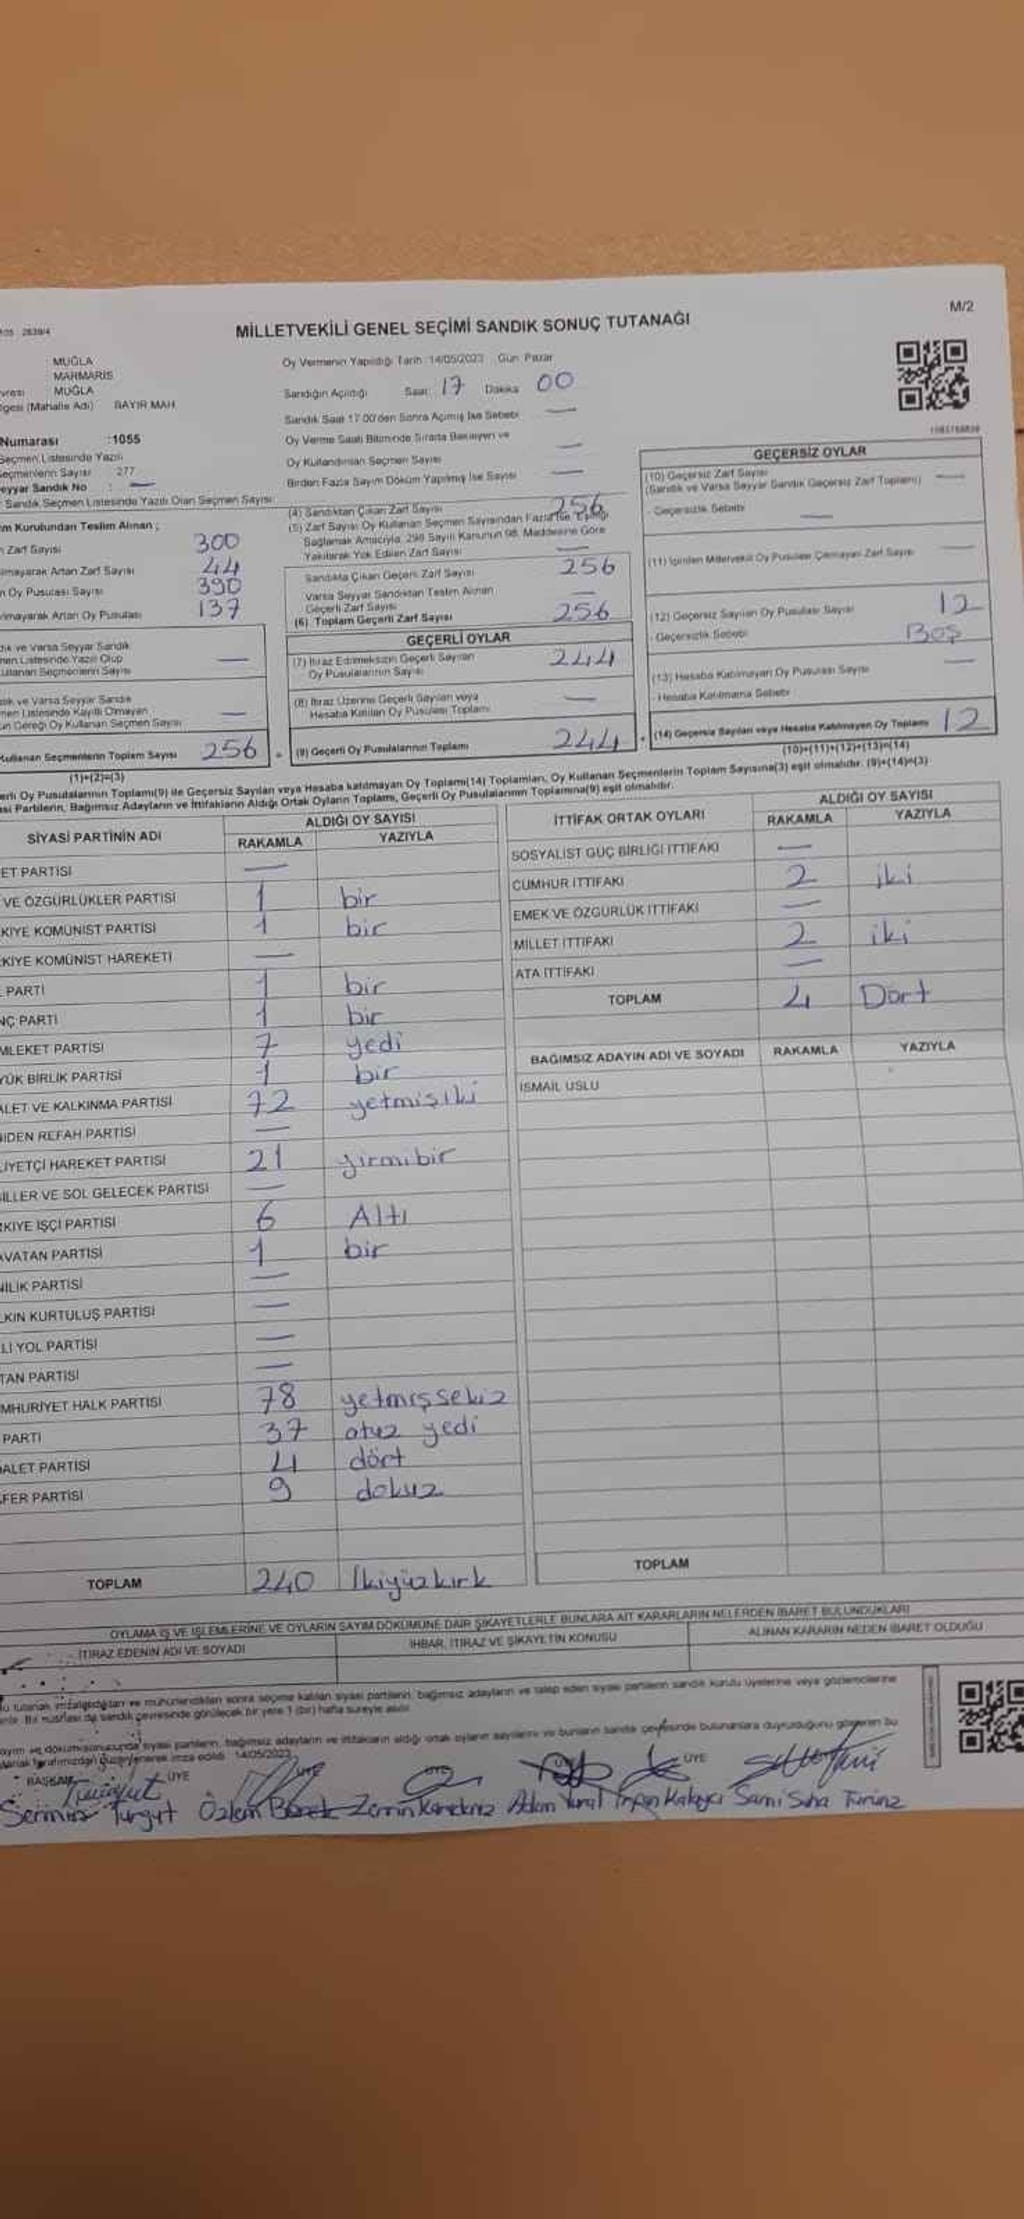 M/2
MİLLETVEKİLİ GENEL SEÇİMİ SANDIK SONUÇ TUTANAĞI
MUĞLA
MARMARİS
MUĞLA
(Mahalle Adı) BAYIR MAH.
Numarası :1055
Seçmen Listesinde Yazılı
Seçmenlerin Sayısı 277
Seyyar Sandık No : —
Sandık Seçmen Listesinde Yazılı Olan Seçmen Sayısı
Kurulundan Teslim Alınan ;
Zarf Sayısı 300
Artan Zarf Sayısı 44
Oy Pusulası Sayısı 390
Artan Oy Pusulası 137
ve Varsa Seyyar Sandık
Listesinde Yazılı Olup
Kullanan Seçmenlerin Sayısı —
ve Varsa Seyyar Sandık
Listesinde Kayıtlı Olmayan
Gereği Oy Kullanan Seçmen Sayısı —
Kullanan Seçmenlerin Toplam Sayısı 256
(1)+(2)=(3)
Oy Vermenin Yapıldığı Tarih :14/05/2023 Gün: Pazar
Sandığın Açıldığı Saat: 17 Dakika 00
Sandık Saat 17:00'den Sonra Açılmış İse Sebebi —
Oy Verme Saati Bitiminde Sırada Bekleyen ve
Oy Kullandırılan Seçmen Sayısı —
Birden Fazla Sayım Döküm Yapılmış İse Sayısı —
(4) Sandıktan Çıkan Zarf Sayısı 256
(5) Zarf Sayısı Oy Kullanan Seçmen Sayısından Fazla İse Eşitliği
Sağlamak Amacıyla, 298 Sayılı Kanunun 98. Maddesine Göre
Yakılarak Yok Edilen Zarf Sayısı —
Sandıkta Çıkan Geçerli Zarf Sayısı 256
Varsa Seyyar Sandıktan Teslim Alınan
Geçerli Zarf Sayısı —
(6) Toplam Geçerli Zarf Sayısı 256
GEÇERLİ OYLAR
(7) İtiraz Edilmeksizin Geçerli Sayılan
Oy Pusulalarının Sayısı 244
(8) İtiraz Üzerine Geçerli Sayılan veya
Hesaba Katılan Oy Pusulası Toplamı —
(9) Geçerli Oy Pusulalarının Toplamı 244
GEÇERSİZ OYLAR
(10) Geçersiz Zarf Sayısı
(Sandık ve Varsa Seyyar Sandık Geçersiz Zarf Toplamı) —
Geçersizlik Sebebi —
(11) İçinden Milletvekili Oy Pusulası Çıkmayan Zarf Sayısı —
(12) Geçersiz Sayılan Oy Pusulası Sayısı 12
Geçersizlik Sebebi Boş
(13) Hesaba Katılmayan Oy Pusulası Sayısı —
Hesaba Katılmama Sebebi
(14) Geçersiz Sayılan veya Hesaba Katılmayan Oy Toplamı 12
(10)+(11)+(12)+(13)=(14)
Oy Pusulalarının Toplamı(9) ile Geçersiz Sayılan veya Hesaba katılmayan Oy Toplamı(14) Toplamları, Oy Kullanan Seçmenlerin Toplam Sayısına(3) eşit olmalıdır. (9)+(14)=(3)
Partilerin, Bağımsız Adayların ve İttifakların Aldığı Ortak Oyların Toplamı, Geçerli Oy Pusulalarının Toplamına(9) eşit olmalıdır.
SİYASİ PARTİNİN ADI ALDIĞI OY SAYISI
RAKAMLA YAZIYLA
ET PARTİSİ —
VE ÖZGÜRLÜKLER PARTİSİ 1 bir
KİYE KOMÜNİST PARTİSİ 1 bir
KİYE KOMÜNİST HAREKETİ —
PARTİ 1 bir
NÇ PARTİ 1 bir
MLEKET PARTİSİ 7 yedi
YÜK BİRLİK PARTİSİ 1 bir
ALET VE KALKINMA PARTİSİ 72 yetmişiki
NİDEN REFAH PARTİSİ —
LİYETÇİ HAREKET PARTİSİ 21 yirmibir
İLLER VE SOL GELECEK PARTİSİ —
RKİYE İŞÇİ PARTİSİ 6 Altı
AVATAN PARTİSİ 1 bir
NİLİK PARTİSİ —
LKIN KURTULUŞ PARTİSİ —
Lİ YOL PARTİSİ —
TAN PARTİSİ —
MHURİYET HALK PARTİSİ 78 yetmişsekiz
PARTİ 37 otuz yedi
DALET PARTİSİ 4 dört
FER PARTİSİ 9 dokuz
TOPLAM 240 İkiyüzkırk
İTTİFAK ORTAK OYLARI ALDIĞI OY SAYISI
RAKAMLA YAZIYLA
SOSYALİST GÜÇ BİRLİĞİ İTTİFAKI —
CUMHUR İTTİFAKI 2 iki
EMEK VE ÖZGÜRLÜK İTTİFAKI —
MİLLET İTTİFAKI 2 iki
ATA İTTİFAKI —
TOPLAM 4 Dört
BAĞIMSIZ ADAYIN ADI VE SOYADI RAKAMLA YAZIYLA
İSMAİL USLU
TOPLAM
OYLAMA İŞ VE İŞLEMLERİNE VE OYLARIN SAYIM DÖKÜMÜNE DAİR ŞİKAYETLERLE BUNLARA AİT KARARLARIN NELERDEN İBARET BULUNDUKLARI
İTİRAZ EDENİN ADI VE SOYADI İHBAR, İTİRAZ VE ŞİKAYETİN KONUSU ALINAN KARARIN NEDEN İBARET OLDUĞU
tutanak, imzalandıktan ve mühürlendikten sonra seçime katılan siyasi partilerin, bağımsız adayların ve talep eden siyasi partilerin sandık kurulu üyelerine veya gözlemcilerine
Bir nüshası da sandık çevresinde görülecek bir yere 1 (bir) hafta süreyle asılır.
sayım ve dökümü sonucunda siyasi partilerin, bağımsız adayların ve ittifakların aldığı ortak oyların sayılarını ve bunların sandık çevresinde bulunanlara duyurulduğunu gösteren bu
tarafımızdan düzenlenerek imza edildi. 14/05/2023
BAŞKAN ÜYE ÜYE
Turgut Özlem Adem Sami Suha